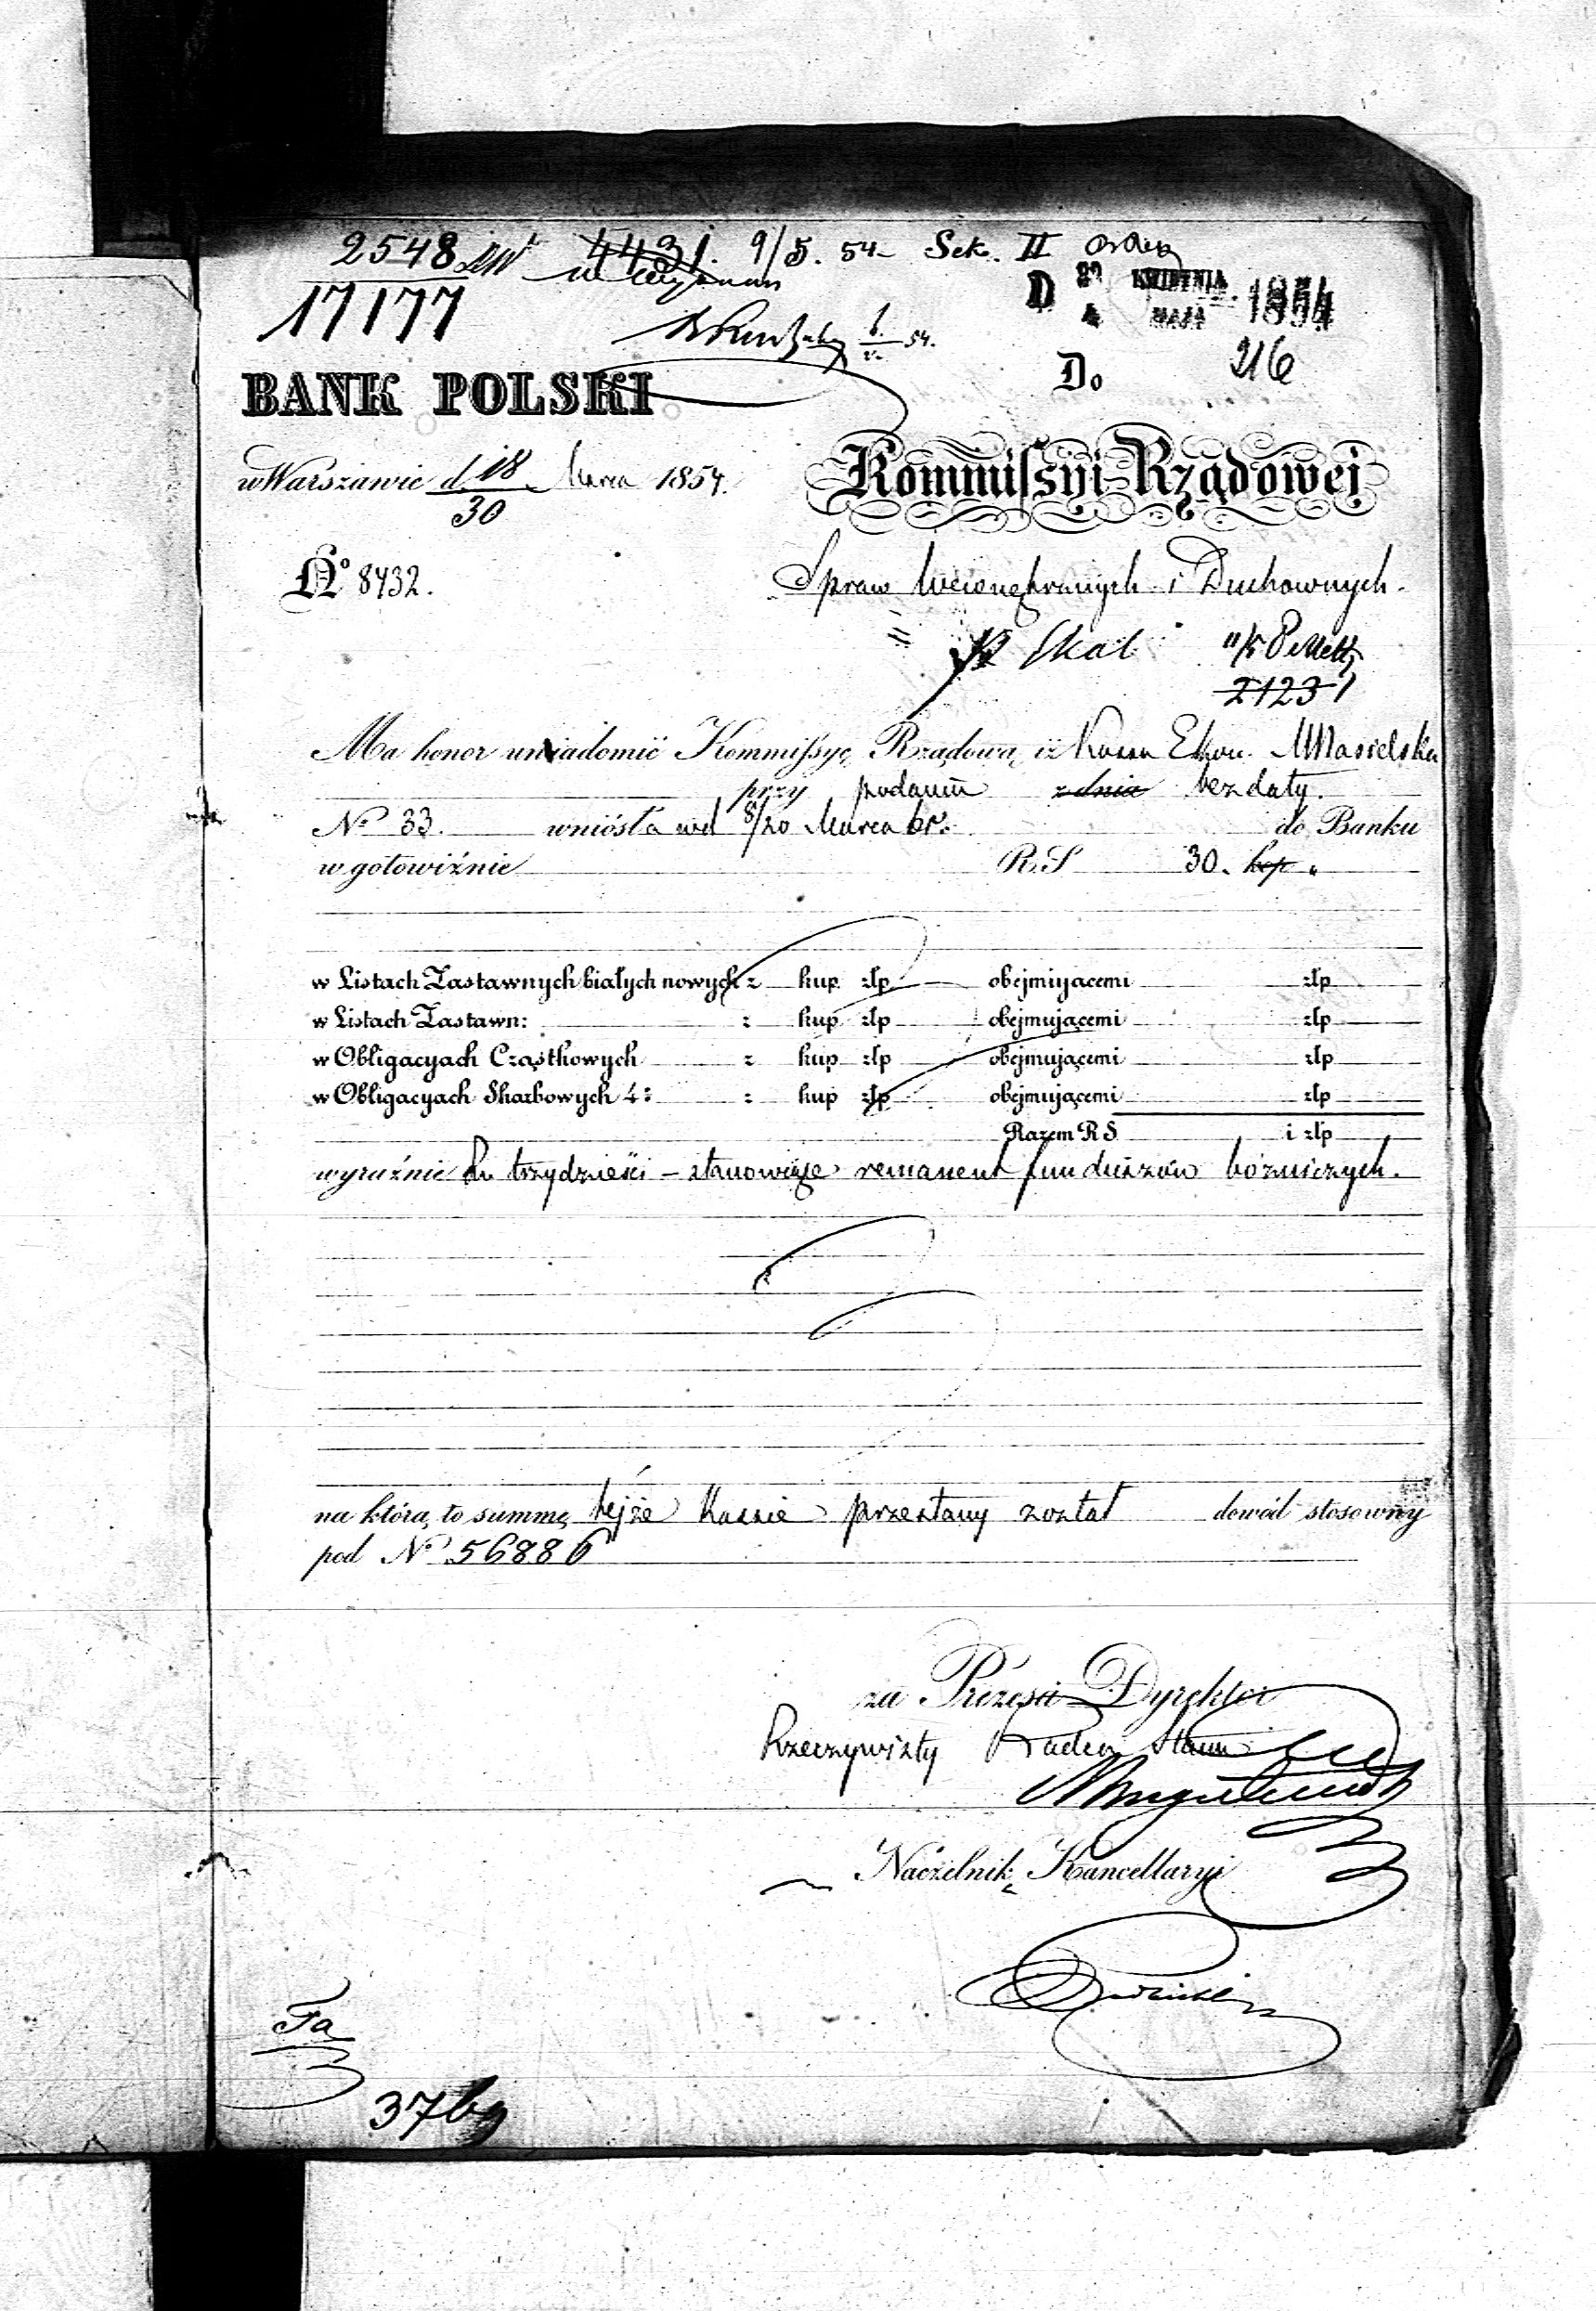 2548
4431. 9/5. 54 Sek. II
17177
D 22 KWIETNIA 1854
4 MAJA
54.
Do 216
BANK POLSKI
w Warszawie d 18 Marca 1854.
30
Kommissyi Rządowej
Nº 8432.
Spraw Wewnętrznych i Duchownych.
Skal
21231
Ma honor uwiadomić Kommissyę Rządową iż Kassa Ekon.
przy podaniu z dnia bez daty.
Nº 33. wniosła wd 8/20 Marca br. do Banku
w gotowiźnie R.S 30. kop "
w Listach Zastawnych białych nowych z kup złp obejmującemi złp
w Listach Zastawn: z kup złp obejmującemi złp
w Obligacyach Cząstkowych z kup złp obejmującemi złp
w Obligacyach Skarbowych 4: z kup złp obejmującemi złp
Razem R S i złp
wyraźnie Rs trzydzieści – stanowiące remanent funduszów bóźniczych.
na którą to summę tejże Kassie przesłany został dowód stosowny
pod Nº 56886
za Prezesa Dyrektor
Rzeczywisty Radca Stanu
Naczelnik Kancellaryi
Fa